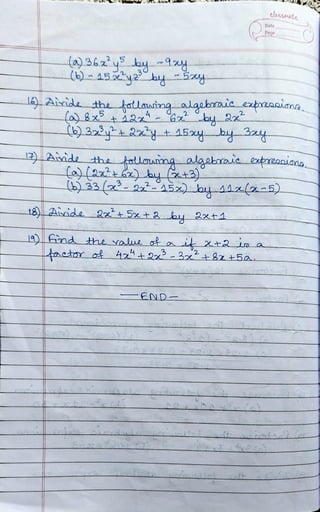 classmate
Date
Page
(a) 36x²y⁵ by -9xy
(b) -15x²yz³ by -5xy
16) Divide the following algebraic expressions.
(a) 8x⁵ + 12x⁴ - 6x² by 2x²
(b) 3x³y² + 2x²y + 15xy by 3xy.
17) Divide the following algebraic expressions.
(a) (2x²+6x) by (x+3)
(b) 33(x³-2x²-15x) by 11x(x-5)
18) Divide 2x²+5x+2 by 2x+1
19) Find the value of a if x+2 is a
factor of 4x⁴+2x³-3x²+8x+5a.
—END—